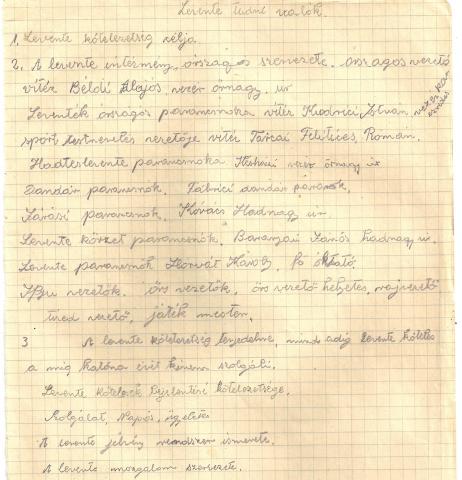 Levente tudni valók.
1. Levente kötelezetség célja.
2. A levente intézmény, országos szervezete. országos vezető
vitéz Béldi Alajos vezér őrnagy. úr
Leventék országos parancsnoka vitéz Kudrici István
sport testnevelés vezetője vitéz Tárcai Felitices Román.
Hadtestlevente parancsnoka vezér őrnagy úr
Dandár parancsnok. Fábrici dandár parancsnok.
Járási parancsnok. Kovács Hadnagy úr.
Levente körzet parancsnok. Baranyai János hadnagy úr.
Levente parancsnok Horvát Károly. fő oktató.
Ifjú vezetők. őrs vezetők, őrs vezető helyetes, rajvezető
vezető, játék mester.
3 A levente kötelezetség terjedelme, mind adig levente köteles
a míg katona évit szolgáli.
Levente kötelesek bejelentési kötelezetsége.
Szolgálat, Napos, ügyeletes
A levente jelvény rendszer ismerete.
A levente mozgalom szervezete.